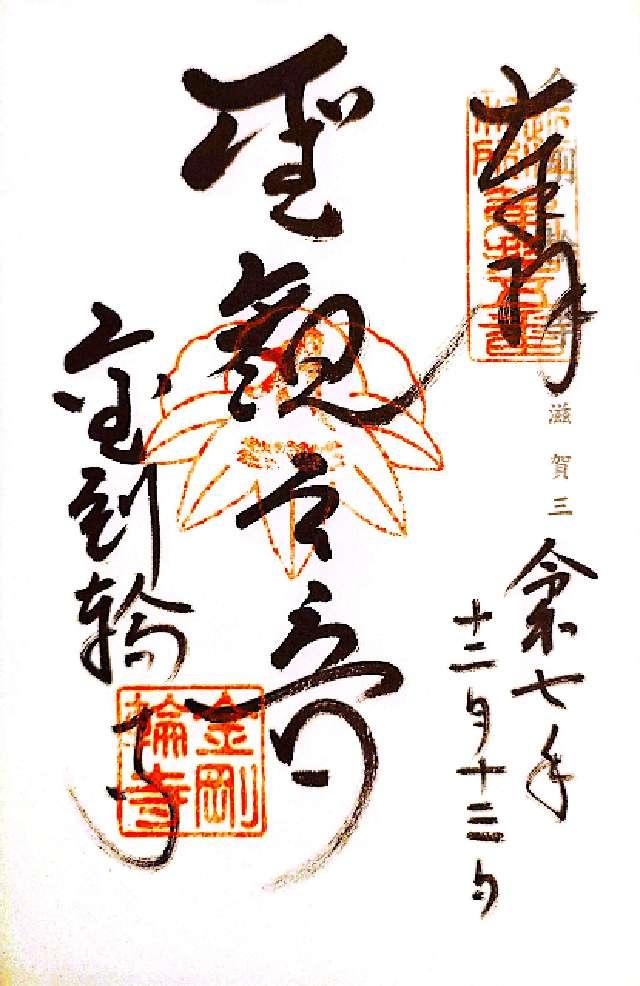 奉拝
滋賀三
令和七年
十二月十三日
聖観世音
金剛輪寺
金剛輪寺